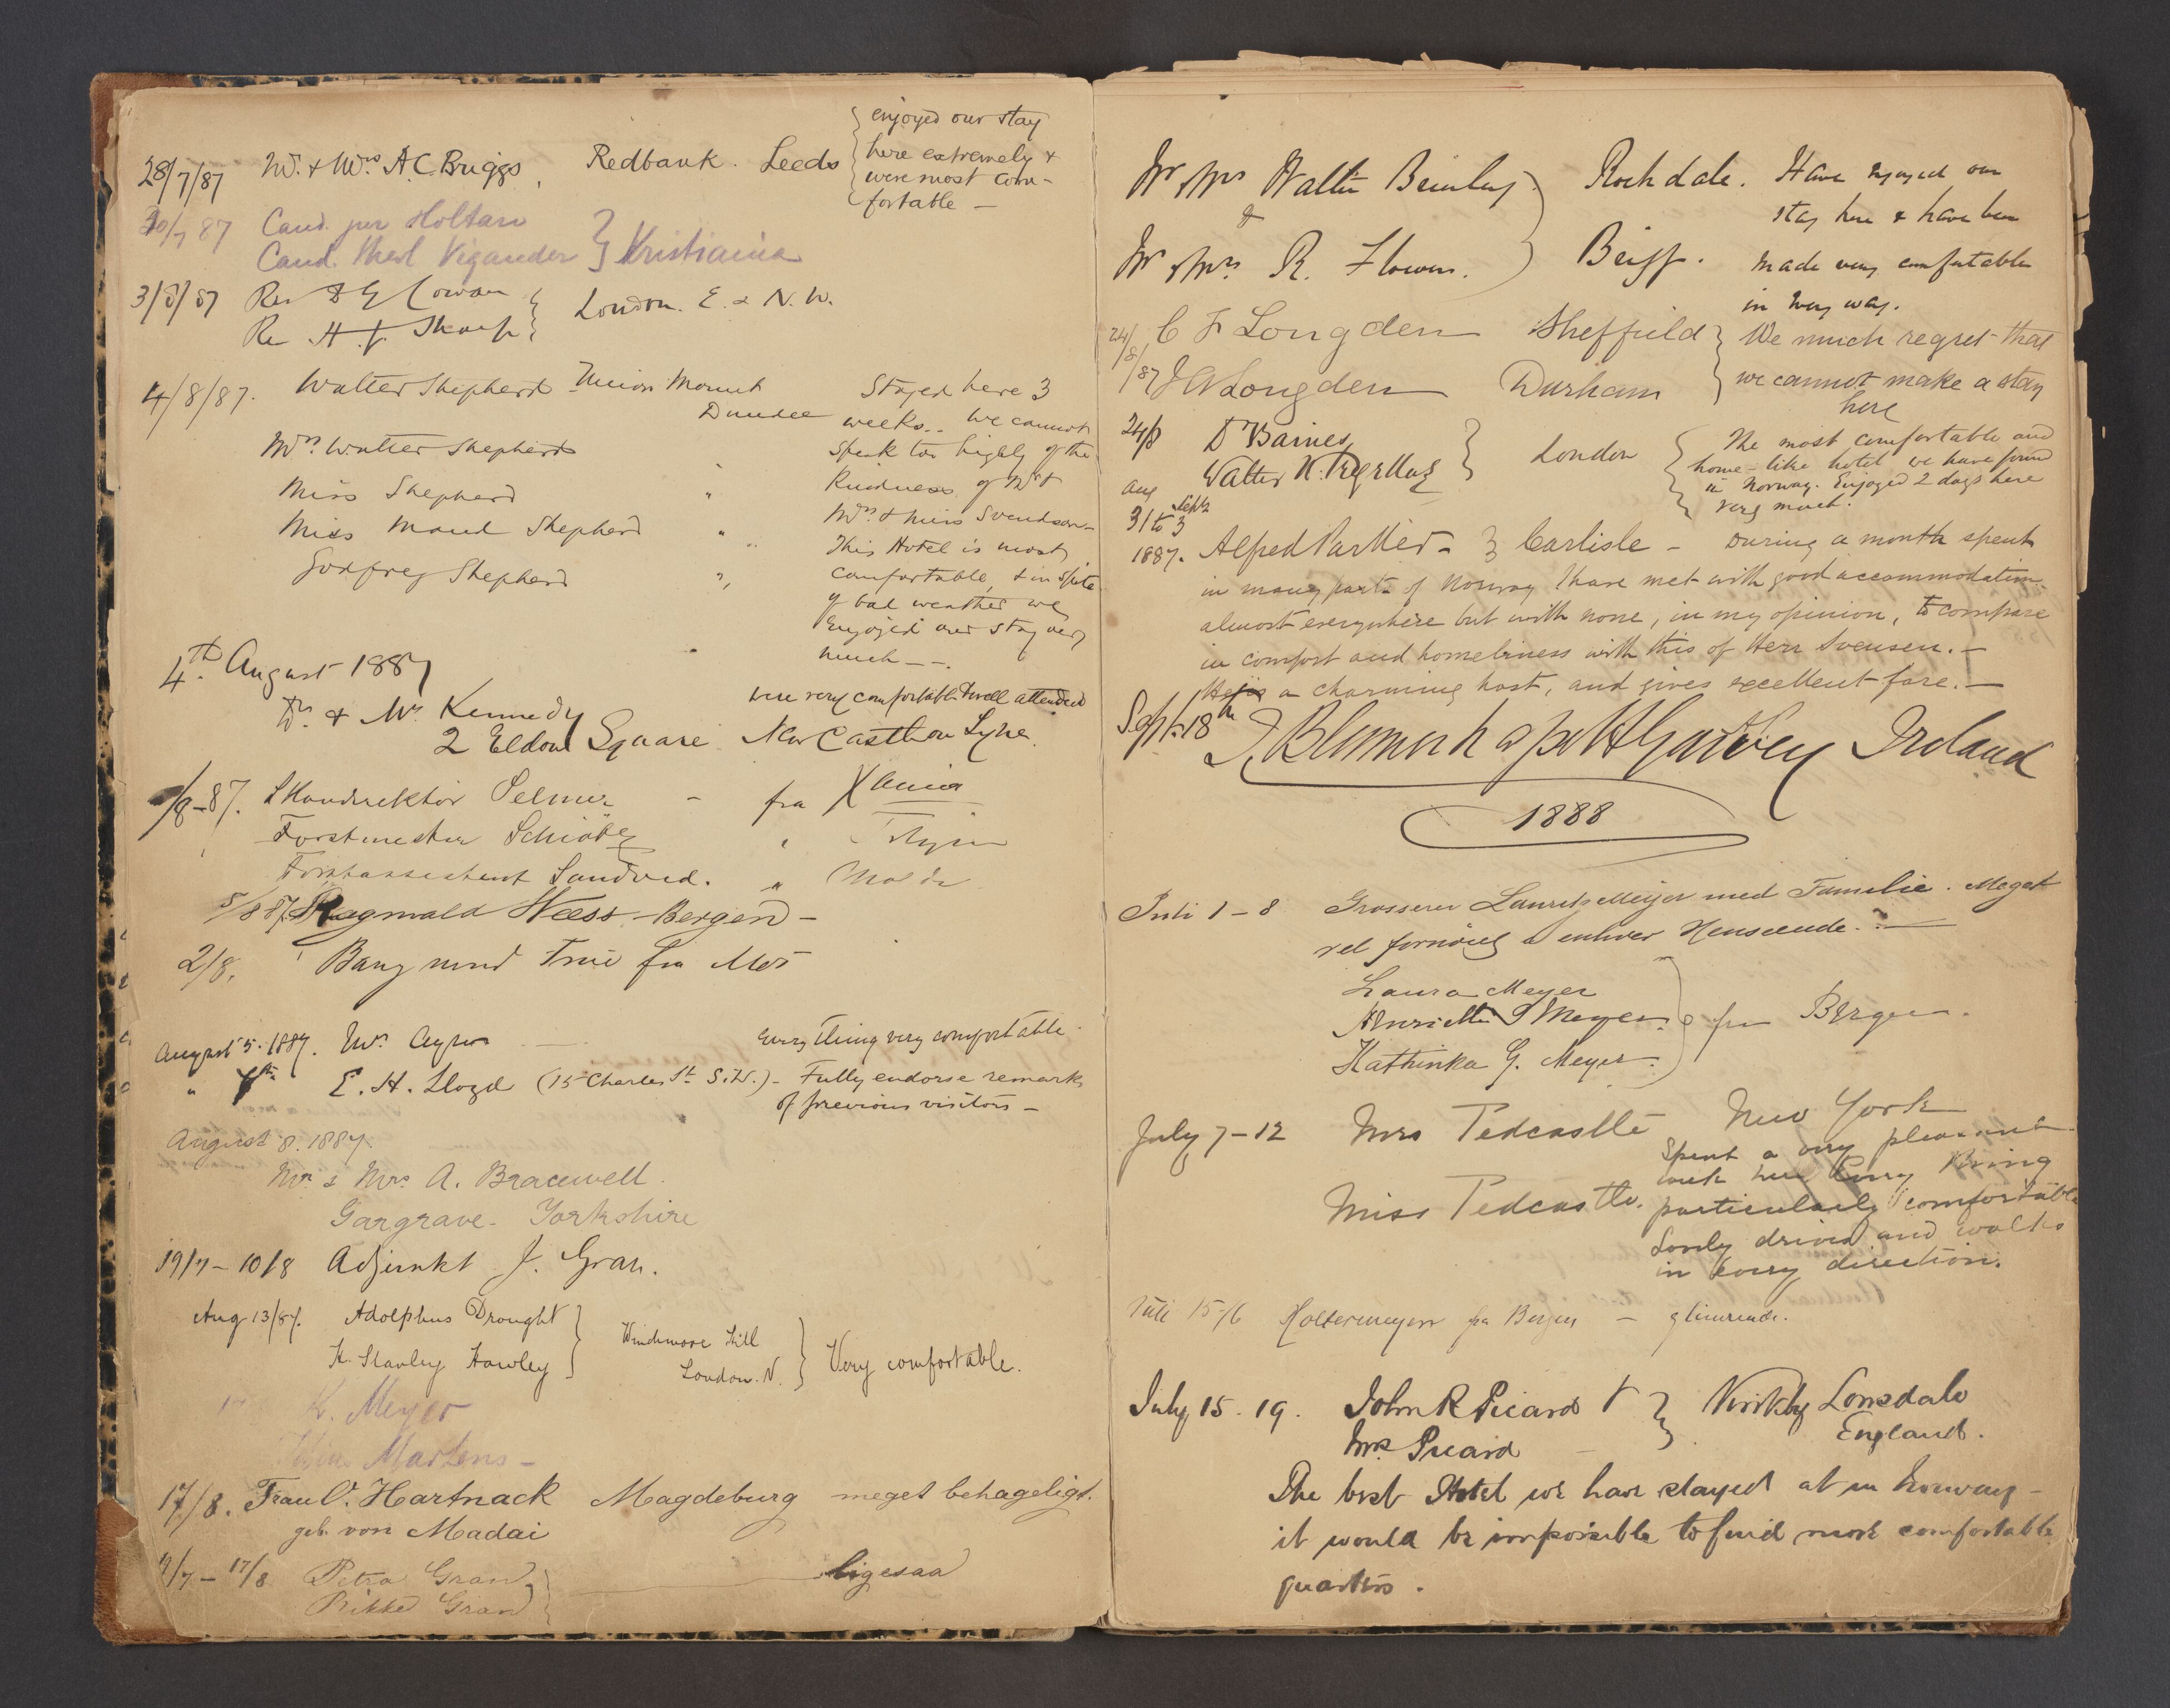 28/7/87 Mr. & Mrs. A. C. Briggs, Redbank. Leeds
enjoyed our stay
here extremely &
were most com-
fortable —
30/7 87 Cand. jur Holtan
Cand. theol Vigander } Kristiania
3/8/87 Rev D G Cowan
Rev H. J. Sharp } London. E. & N. W.
4/8/87. Walter Shepherd Union Mount
Dundee
Mrs. Walter Shepherd
Miss Shepherd "
Miss Maud Shepherd "
Godfrey Shepherd "
Stayed here 3
weeks.. We cannot
speak too highly of the
kindness of Mr &
Mrs. & Miss Svendsen—
This Hotel is most
comfortable, & in spite
of bad weather we
enjoyed our stay very
much — —.
4th. August 1887
Dr. & Mrs. Kennedy
were very comfortable & well attended
2 Eldon Square Newcastle on Tyne.
/8–87. Skovdirektør Selmer – fra Xania
Forstmester Schiötz "
Forstassistent Sandved. " Molde
5/8 87. Ragnvald Næss – Bergen –
2/8. Bang med Frue fra Mos
August 5. 1887. Mrs. everything very comfortable.
" 7th E. H. Lloyd (15 Charles St. S.W.) – Fully endorse remarks
of previous visitors –
August 8. 1887.
Mr & Mrs. A. Bracewell.
Gargrave – Yorkshire
19/7 – 10/8 Adjunkt J. Gran.
Aug 13/87. Adolphus Drought
H. Stanley Hawley } Winchmore Hill
London. N. } Very comfortable.
K. Meyer
Martens –
17/8. Frau C. Hartnack Magdeburg meget behageligt.
geb. von Madai
/7 – 17/8 Petra Gran
Rikke Gran } ligesaa
Mr Mrs Walter Brierley. Rochdale. Have enjoyed our
&
Mr Mrs. R. Flower. } Brigg.
stay here & have been
made very comfortable
in every way.
24/8/87 C F Longden Sheffield
J A Longden Durham
We much regret that
we cannot make a stay
here
24/8 Dr Baines
Walter K. } London
The most comfortable and
home-like hotel we have found
in Norway. Enjoyed 2 days here
very much.
Aug
31 to Sept 3
1887. Alfred Parker – } Carlisle – During a month spent
in many parts of Norway I have met with good accommodation
almost everywhere but with none, in my opinion, to compare
in comfort and homeliness with this of Herr Svensen. —
He is a charming host, and gives excellent fare. —
Sept. 18th Garvey Ireland
1888
Juli 1 – 8 Grosserer Lauritz Meijer med Familie. Meget
vel fornöiet i enhver Henseende. —
Laura Meyer
Henriette S Meyer.
Kathinka G. Meyer. } fra Bergen.
July 7 – 12 Mrs Tedcastle New York
Miss Tedcastle.
Spent a very pleasant
week here Every thing
particularly comfortable
Lovely drives and walks
in every direction.
Juli 15–16 Holtermeyer fra Bergen – glimrende.
July 15. 19. John R Picard &
Mrs. Picard } Kirkby Lonsdale
England.
The best Hotel we have stayed at in Norway –
it would be impossible to find more comfortable
quarters.